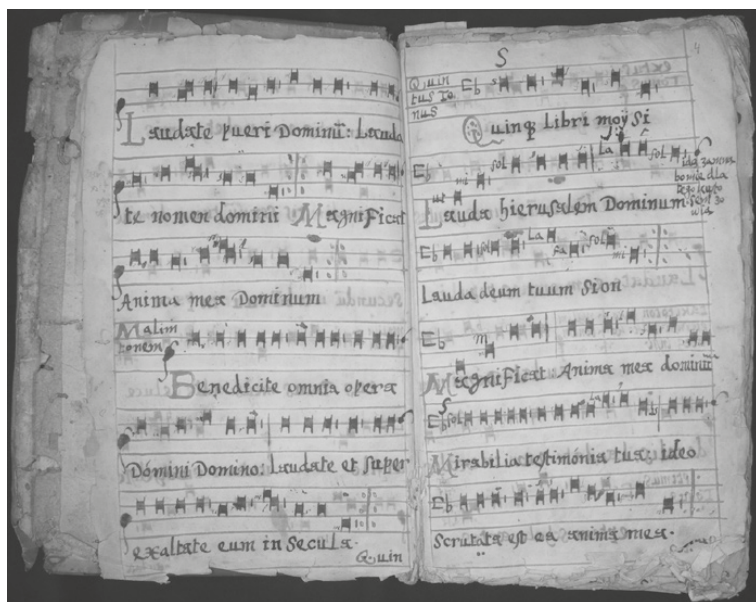 Laudate pueri Dominū: Lauda
te nomen domini Magnificat
Anima mea Dominum
Malim
tonem
Benedicite omnia opera
Domini Domino: Laudate et super
exaltate eum in Secula.
Quin
S
4
Quin
tus To
nus
Quinq Libri moysi
mi sol La sol
Lauda hierusalem Dominum
La fa sol mi
Lauda deum tuum Sion
Magnificat Anima mea dominū
sol
Mirabilia testimonia tua: ideo
Scrutata est ea anima mea.